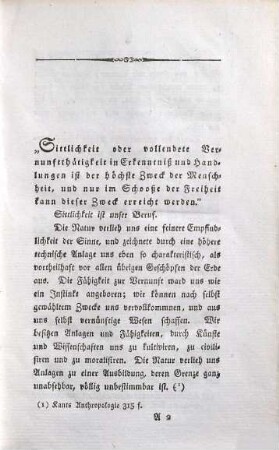 „Sittlichkeit oder vollendete Ver-
nunftthätigkeit in Erkenntniß und Hand-
lungen ist der höchste Zweck der Mensch-
heit, und nur im Schooße der Freiheit
kann dieser Zweck erreicht werden.“
Sittlichkeit ist unser Beruf.
Die Natur verlieh uns eine feinere Empfind-
lichkeit der Sinne, und zeichnete durch eine höhere
technische Anlage uns eben so charakteristisch, als
vortheilhaft vor allen übrigen Geschöpfen der Erde
aus. Die Fähigkeit zur Vernunft ward uns wie
ein Instinkt angeboren; wir können nach selbst
gewähltem Zwecke uns vervollkommen, und aus
uns selbst vernünftige Wesen schaffen. Wir
besitzen Anlagen und Fähigkeiten, durch Künste
und Wissenschaften uns zu kultiviren, zu civili-
siren und zu moralisiren. Die Natur verlieh uns
Anlagen zu einer Ausbildung, deren Grenze ganz
unabsehbar, völlig unbestimmbar ist. (1)
(1) Kants Anthropologie 315 f.
A 2